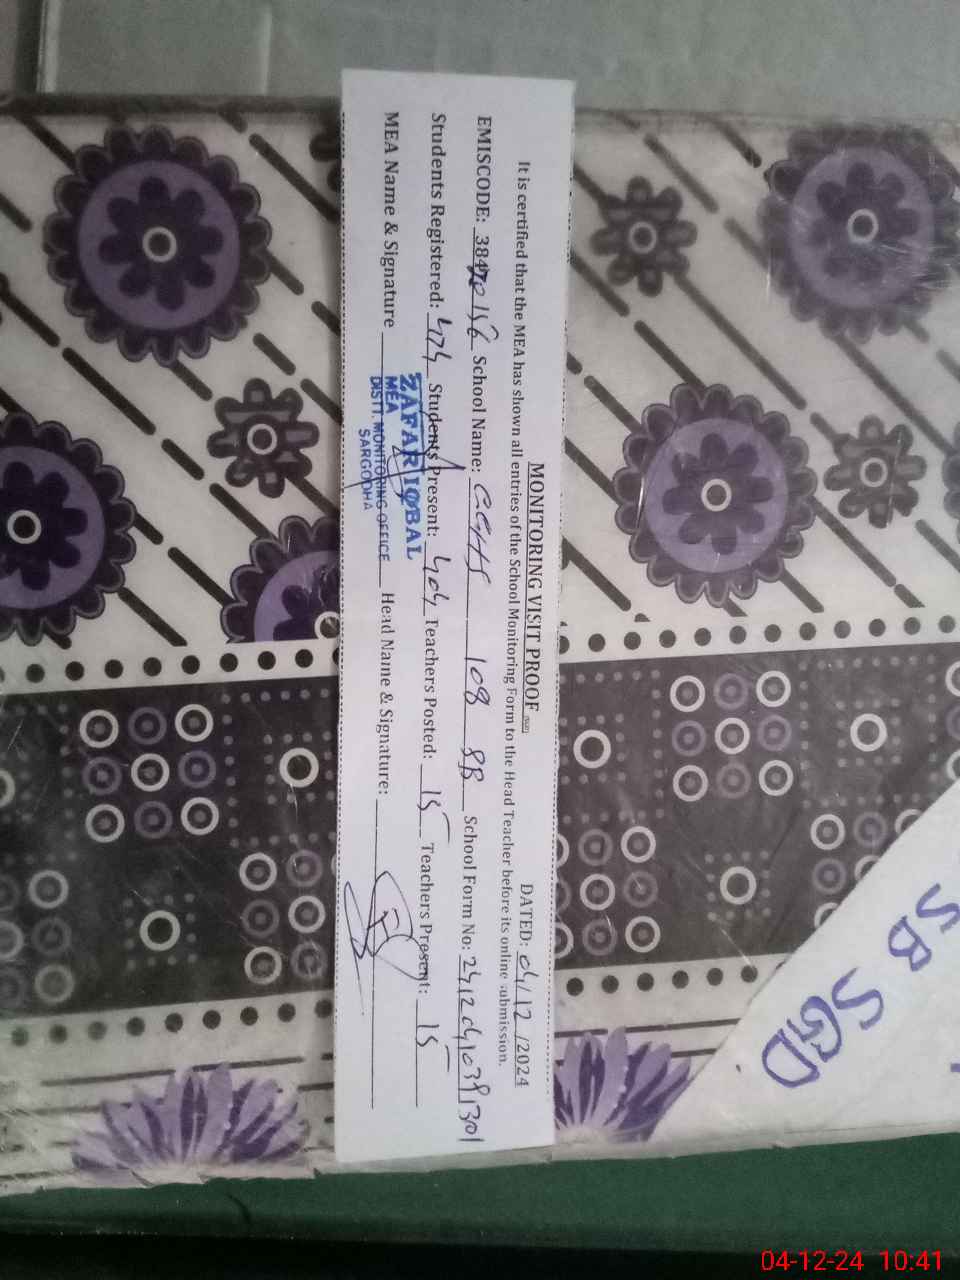 MONITORING VISIT PROOF
DATED: 04/12/2024
It is certified that the MEA has shown all entries of the School Monitoring Form to the Head Teacher before its online submission.
EMISCODE: School Name: GGHS 108 SB School Form No:
Students Registered: 474 Students Present: 404 Teachers Posted: 15 Teachers Present: 15
MEA Name & Signature Head Name & Signature:
ZAFAR IQBAL
MEA
DISTT. MONITORING OFFICE
SARGODHA
SB
SGD
04-12-24 10:41